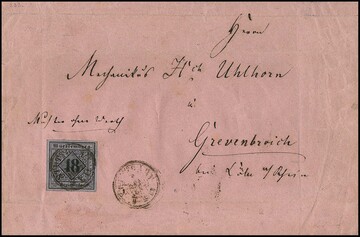 Herrn
Mechanikus Hch Uhlhorn
in
Grevenbroich
bei Cöln a/Rhein
Muster ohne Werth
Württemberg
18